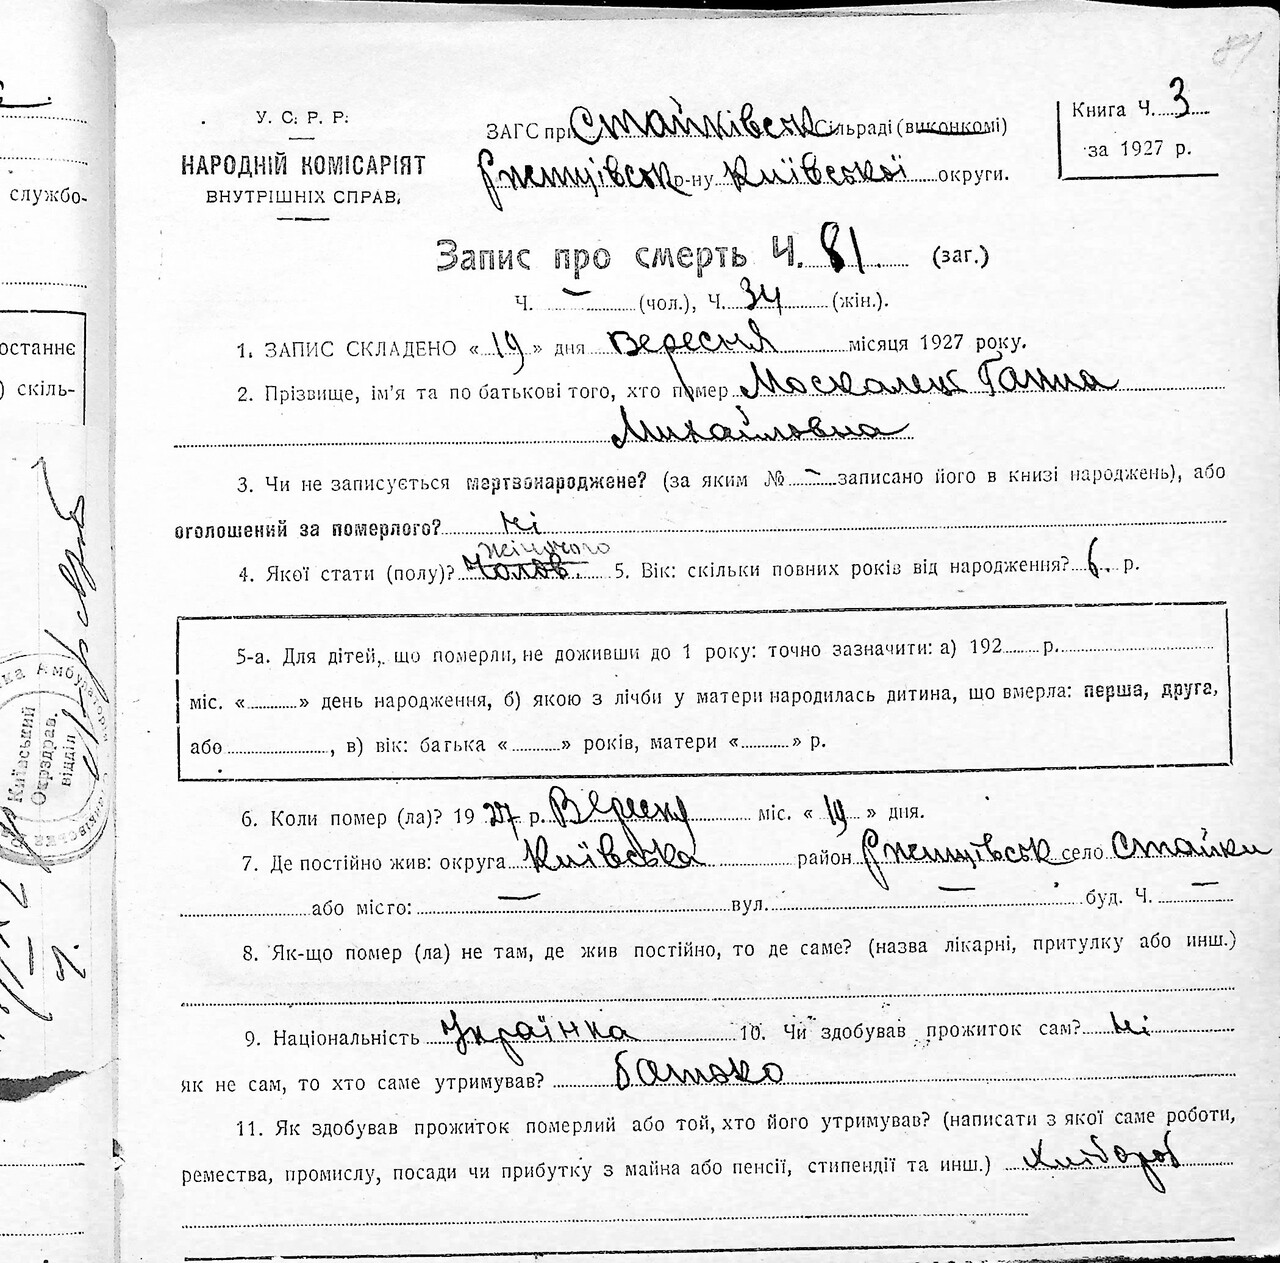 81
службо-
останнє
) скіль-
Амбулаторія
Київський
Окрздрав.
відділ
У. С. Р. Р.
НАРОДНІЙ КОМІСАРІЯТ
ВНУТРІШНІХ СПРАВ.
ЗАГС при Стайківськ Сільраді (виконкомі)
Ржищівськ р-ну Київської округи.
Книга Ч. 3
за 1927 р.
Запис про смерть Ч. 81. (заг.)
Ч. – (чол.), Ч. 34 (жін.).
1. ЗАПИС СКЛАДЕНО « 19 » дня вересня місяця 1927 року.
2. Прізвище, ім'я та по батькові того, хто помер Москалец Ганна
Михайловна
3. Чи не записується мертвонароджене? (за яким № – записано його в книзі народжень), або
оголошений за померлого? ні
жіночого
4. Якої стати (полу)? Чолов. 5. Вік: скільки повних років від народження? 6. р.
5-а. Для дітей, що померли, не доживши до 1 року: точно зазначити: а) 192 р.
міс. « » день народження, б) якою з лічби у матери народилась дитина, що вмерла: перша, друга,
або , в) вік: батька « » років, матери « » р.
6. Коли помер (ла)? 19 27 р. Вересня міс. « 19 » дня.
7. Де постійно жив: округа Київська район Ржищівськ село Стайки
або місто: – вул. – буд. Ч. –
8. Як-що помер (ла) не там, де жив постійно, то де саме? (назва лікарні, притулку або инш.)
9. Національність Українка 10. Чи здобував прожиток сам? ні
як не сам, то хто саме утримував? батько
11. Як здобував прожиток померлий або той, хто його утримував? (написати з якої саме роботи,
ремества, промислу, посади чи прибутку з майна або пенсії, стипендії та инш.) Хлібороб